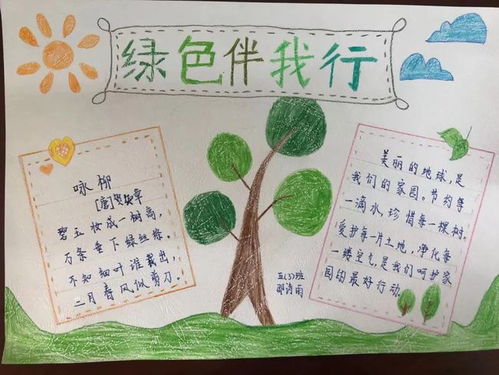 绿色伴我行
咏柳
[唐]贺知章
碧玉妆成一树高,
万条垂下绿丝绦,
不知细叶谁裁出,
二月春风似剪刀.
五(3)班
邵诗雨
美丽的地球,是
我们的家园,节约每
一滴水,珍惜每一棵树,
爱护每一片土地,净化每
一缕空气,是我们呵护家
园的最好行动